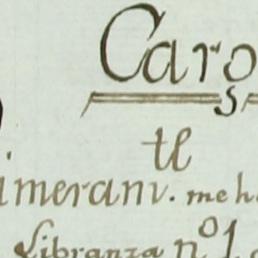 Caro
S
tl
imeranv. me h
Libranza nº 1